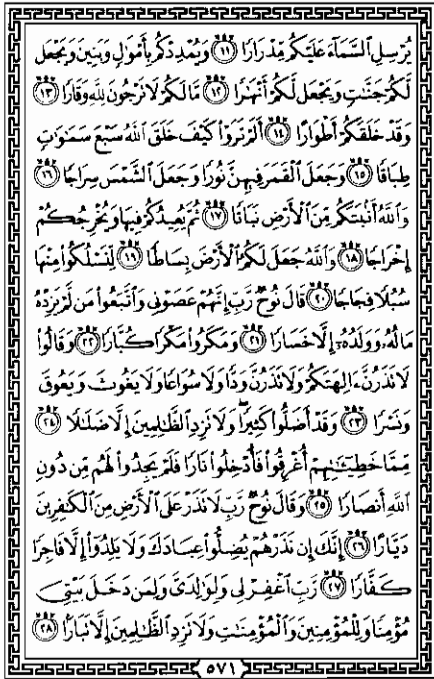 يُرْسِلِ ٱلسَّمَآءَ عَلَيْكُم مِّدْرَارًا ١١ وَيُمْدِدْكُم بِأَمْوَٰلٍ وَبَنِينَ وَيَجْعَل
لَّكُمْ جَنَّٰتٍ وَيَجْعَل لَّكُمْ أَنْهَٰرًا ١٢ مَّا لَكُمْ لَا تَرْجُونَ لِلَّهِ وَقَارًا ١٣
وَقَدْ خَلَقَكُمْ أَطْوَارًا ١٤ أَلَمْ تَرَوْا۟ كَيْفَ خَلَقَ ٱللَّهُ سَبْعَ سَمَٰوَٰتٍ
طِبَاقًا ١٥ وَجَعَلَ ٱلْقَمَرَ فِيهِنَّ نُورًا وَجَعَلَ ٱلشَّمْسَ سِرَاجًا ١٦
وَٱللَّهُ أَنۢبَتَكُم مِّنَ ٱلْأَرْضِ نَبَاتًا ١٧ ثُمَّ يُعِيدُكُمْ فِيهَا وَيُخْرِجُكُمْ
إِخْرَاجًا ١٨ وَٱللَّهُ جَعَلَ لَكُمُ ٱلْأَرْضَ بِسَاطًا ١٩ لِّتَسْلُكُوا۟ مِنْهَا
سُبُلًا فِجَاجًا ٢٠ قَالَ نُوحٌ رَّبِّ إِنَّهُمْ عَصَوْنِى وَٱتَّبَعُوا۟ مَن لَّمْ يَزِدْهُ
مَالُهُۥ وَوَلَدُهُۥٓ إِلَّا خَسَارًا ٢١ وَمَكَرُوا۟ مَكْرًا كُبَّارًا ٢٢ وَقَالُوا۟
لَا تَذَرُنَّ ءَالِهَتَكُمْ وَلَا تَذَرُنَّ وَدًّا وَلَا سُوَاعًا وَلَا يَغُوثَ وَيَعُوقَ
وَنَسْرًا ٢٣ وَقَدْ أَضَلُّوا۟ كَثِيرًا ۖ وَلَا تَزِدِ ٱلظَّٰلِمِينَ إِلَّا ضَلَٰلًا ٢٤
مِّمَّا خَطِيٓـَٰٔتِهِمْ أُغْرِقُوا۟ فَأُدْخِلُوا۟ نَارًا فَلَمْ يَجِدُوا۟ لَهُم مِّن دُونِ
ٱللَّهِ أَنصَارًا ٢٥ وَقَالَ نُوحٌ رَّبِّ لَا تَذَرْ عَلَى ٱلْأَرْضِ مِنَ ٱلْكَٰفِرِينَ
دَيَّارًا ٢٦ إِنَّكَ إِن تَذَرْهُمْ يُضِلُّوا۟ عِبَادَكَ وَلَا يَلِدُوٓا۟ إِلَّا فَاجِرًا
كَفَّارًا ٢٧ رَّبِّ ٱغْفِرْ لِى وَلِوَٰلِدَىَّ وَلِمَن دَخَلَ بَيْتِىَ
مُؤْمِنًا وَلِلْمُؤْمِنِينَ وَٱلْمُؤْمِنَٰتِ وَلَا تَزِدِ ٱلظَّٰلِمِينَ إِلَّا تَبَارًۢا ٢٨
٥٧١